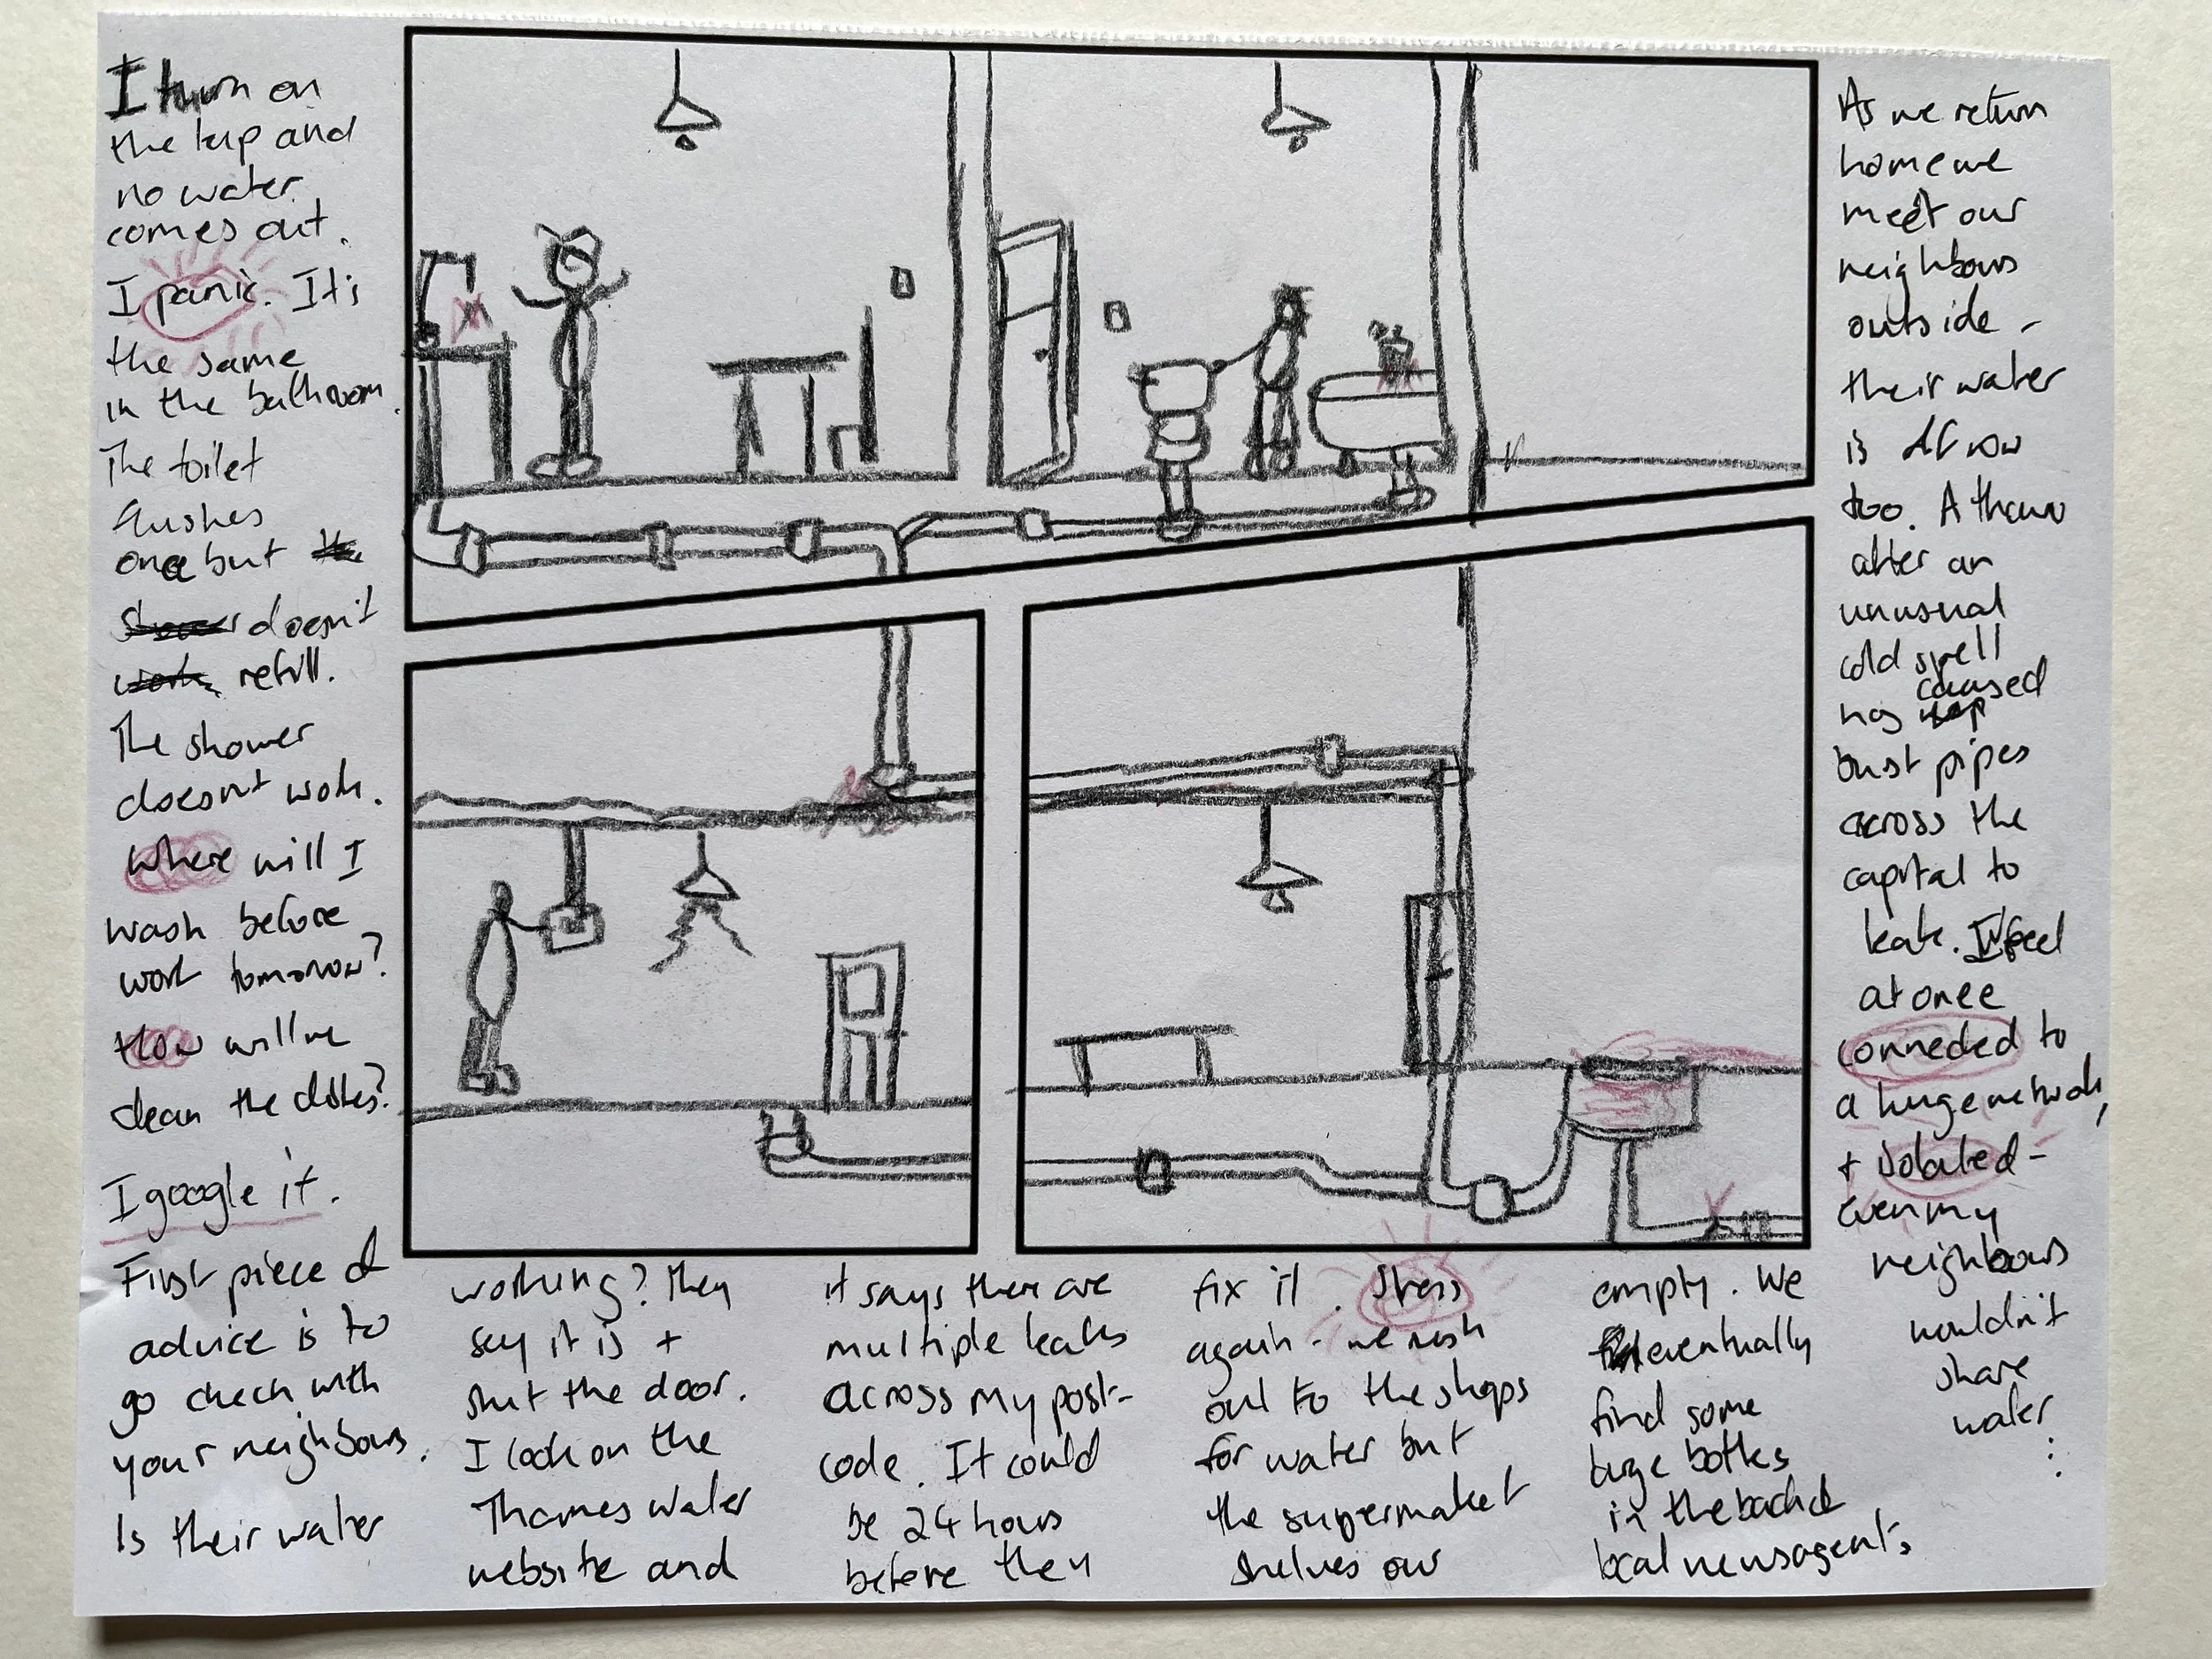 I turn on
the tap and
no water
comes out.
I panic. It's
the same
in the bathroom.
The toilet
flushes
once but
doesn't
refill.
The shower
doesn't work.
Where will I
wash before
work tomorrow?
How will we
clean the dishes?
I google it.
First piece of
advice is to
go check with
your neighbours.
Is their water
working? They
say it is +
shut the door.
I look on the
Thames Water
website and
it says there are
multiple leaks
across my post-
code. It could
be 24 hours
before they
fix it. Stress
again - we rush
out to the shops
for water but
the supermarket
shelves are
empty. We
eventually
find some
large bottles
in the back of
local newsagents.
As we return
home we
meet our
neighbours
outside -
their water
is off now
too. A thaw
after an
unusual
cold spell
has caused
bust pipes
across the
capital to
leak. I feel
at once
connected to
a huge network,
+ isolated -
even my
neighbours
wouldn't
share
water
...